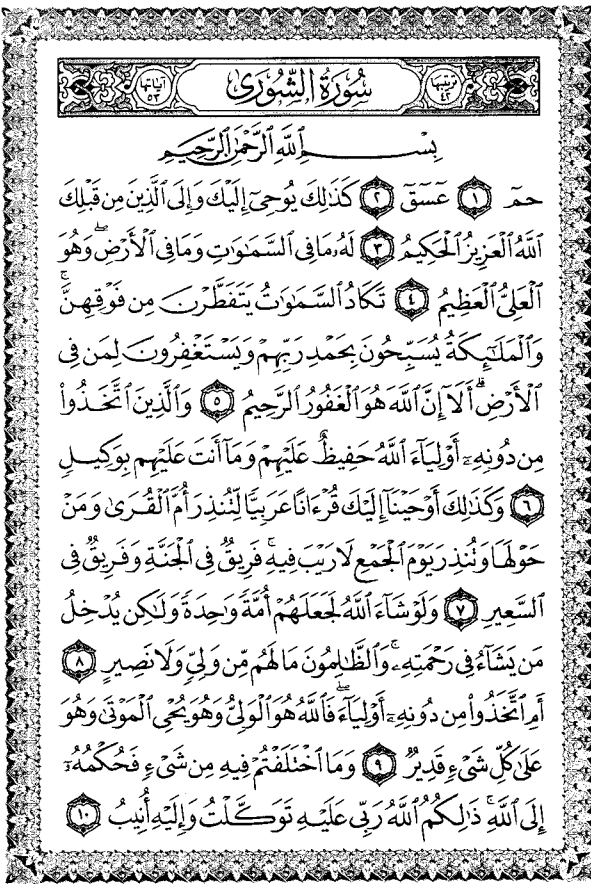 ترتيبها ٤٢ سُورَةُ الشُّورَىٰ آياتها ٥٣
بِسْمِ ٱللَّهِ ٱلرَّحْمَٰنِ ٱلرَّحِيمِ
حمٓ ١ عٓسٓقٓ ٢ كَذَٰلِكَ يُوحِىٓ إِلَيْكَ وَإِلَى ٱلَّذِينَ مِن قَبْلِكَ
ٱللَّهُ ٱلْعَزِيزُ ٱلْحَكِيمُ ٣ لَهُۥ مَا فِى ٱلسَّمَٰوَٰتِ وَمَا فِى ٱلْأَرْضِ ۖ وَهُوَ
ٱلْعَلِىُّ ٱلْعَظِيمُ ٤ تَكَادُ ٱلسَّمَٰوَٰتُ يَتَفَطَّرْنَ مِن فَوْقِهِنَّ ۚ
وَٱلْمَلَٰٓئِكَةُ يُسَبِّحُونَ بِحَمْدِ رَبِّهِمْ وَيَسْتَغْفِرُونَ لِمَن فِى
ٱلْأَرْضِ ۗ أَلَآ إِنَّ ٱللَّهَ هُوَ ٱلْغَفُورُ ٱلرَّحِيمُ ٥ وَٱلَّذِينَ ٱتَّخَذُوا۟
مِن دُونِهِۦٓ أَوْلِيَآءَ ٱللَّهُ حَفِيظٌ عَلَيْهِمْ وَمَآ أَنتَ عَلَيْهِم بِوَكِيلٍ
٦ وَكَذَٰلِكَ أَوْحَيْنَآ إِلَيْكَ قُرْءَانًا عَرَبِيًّا لِّتُنذِرَ أُمَّ ٱلْقُرَىٰ وَمَنْ
حَوْلَهَا وَتُنذِرَ يَوْمَ ٱلْجَمْعِ لَا رَيْبَ فِيهِ ۚ فَرِيقٌ فِى ٱلْجَنَّةِ وَفَرِيقٌ فِى
ٱلسَّعِيرِ ٧ وَلَوْ شَآءَ ٱللَّهُ لَجَعَلَهُمْ أُمَّةً وَٰحِدَةً وَلَٰكِن يُدْخِلُ
مَن يَشَآءُ فِى رَحْمَتِهِۦ ۚ وَٱلظَّٰلِمُونَ مَا لَهُم مِّن وَلِىٍّ وَلَا نَصِيرٍ ٨
أَمِ ٱتَّخَذُوا۟ مِن دُونِهِۦٓ أَوْلِيَآءَ ۖ فَٱللَّهُ هُوَ ٱلْوَلِىُّ وَهُوَ يُحْىِ ٱلْمَوْتَىٰ وَهُوَ
عَلَىٰ كُلِّ شَىْءٍ قَدِيرٌ ٩ وَمَا ٱخْتَلَفْتُمْ فِيهِ مِن شَىْءٍ فَحُكْمُهُۥٓ
إِلَى ٱللَّهِ ۚ ذَٰلِكُمُ ٱللَّهُ رَبِّى عَلَيْهِ تَوَكَّلْتُ وَإِلَيْهِ أُنِيبُ ١٠